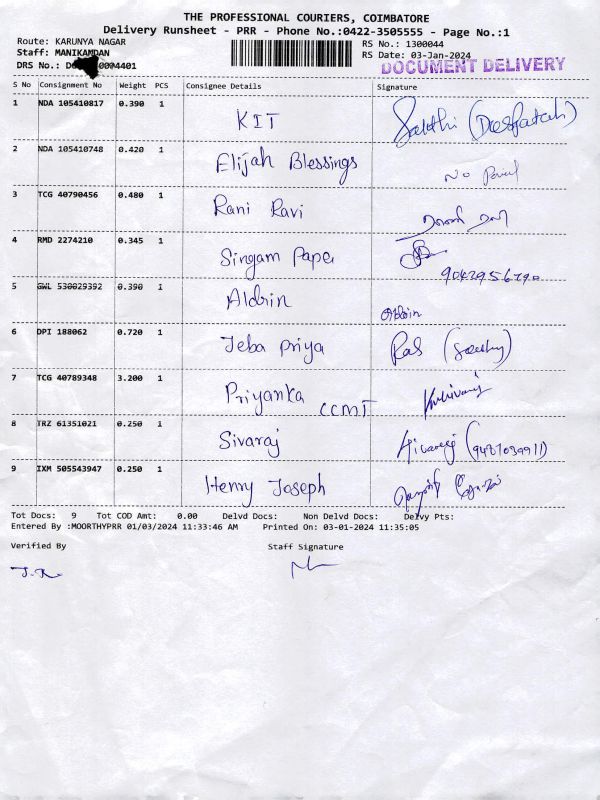 THE PROFESSIONAL COURIERS, COIMBATORE
Delivery Runsheet - PRR - Phone No.:0422-3505555 - Page No.:1
Route: KARUNYA NAGAR
RS No.: 1300044
Staff: MANIKAMDAN
RS Date: 03-Jan-2024
DRS No.:
DOCUMENT DELIVERY
S No Consignment No Weight PCS Consignee Details Signature
1 NDA 105410817 0.390 1 KIT
2 NDA 105410748 0.420 1 Elijah Blessings
3 TCG 40790456 0.480 1 Rani Ravi
4 RMD 2274210 0.345 1 Singam Papa
5 GWL 530029392 0.390 1 Aldrin
6 DPI 188062 0.720 1 Jeba Priya
7 TCG 40789348 3.200 1 Priyanka CCMT
8 TRZ 61351021 0.250 1 Sivaraj
9 IXM 505543947 0.250 1 Henry Joseph
Tot Docs: 9 Tot COD Amt: 0.00 Delvd Docs: Non Delvd Docs: Delvy Pts:
Entered By :MOORTHYPRR 01/03/2024 11:33:46 AM Printed On: 03-01-2024 11:35:05
Verified By Staff Signature